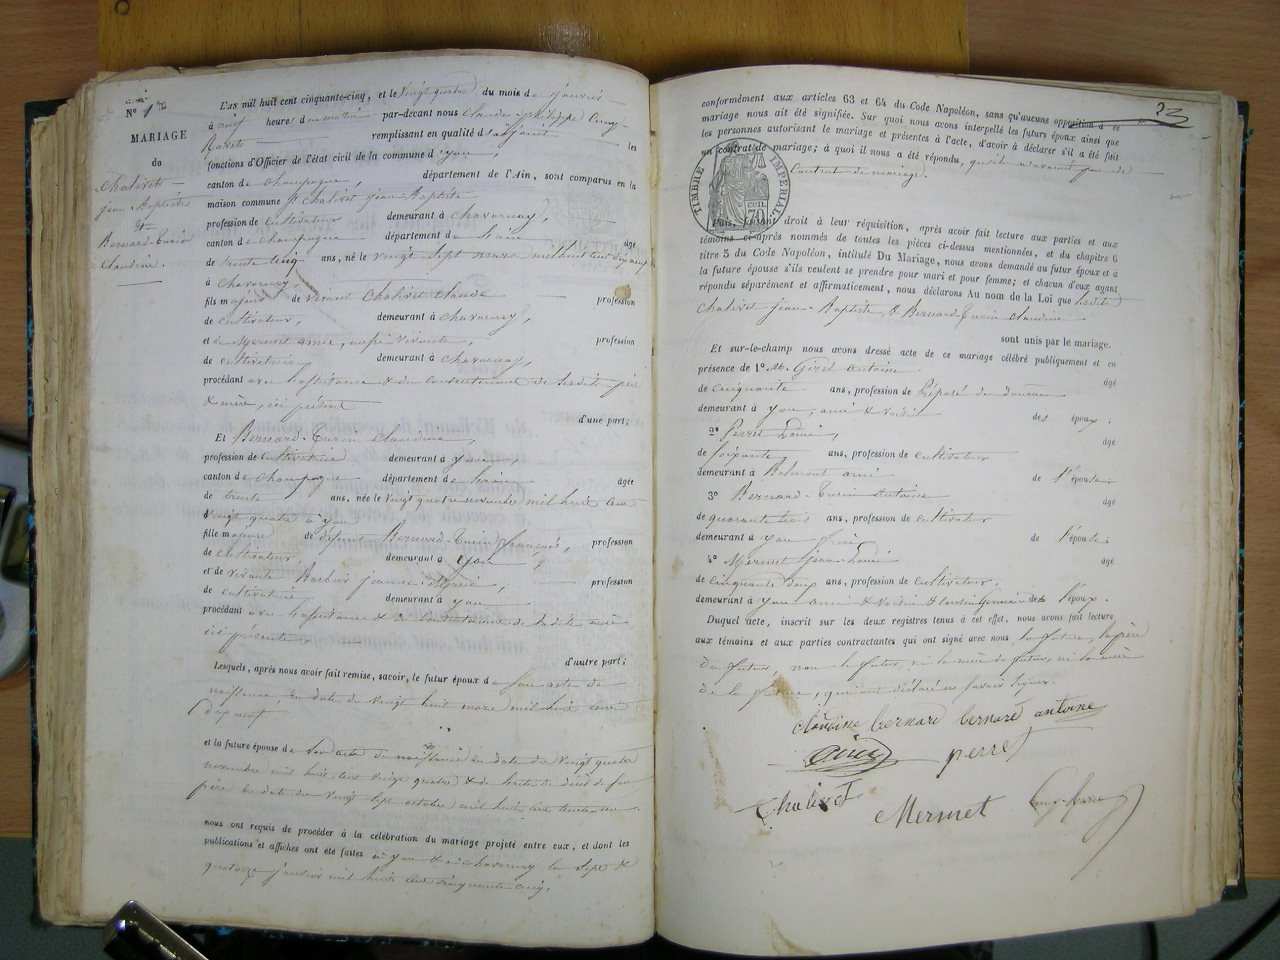 N° 1er
MARIAGE
du
Chalivet
jean Baptiste
et
Bernard-Turin
Claudine.
L'an mil huit cent cinquante-cinq, et le vingt quatre du mois de janvier
à neuf heures du matin par-devant nous Claude philippe
remplissant en qualité d'adjoint les
fonctions d'Officier de l'état civil de la commune d'yon,
canton de Champagne, département de l'Ain, sont comparus en la
maison commune Chalivet jean Baptiste
profession de Cultivateur demeurant à Chavornay,
canton de Champagne département de l'ain âgé
de trente cinq ans, né le vingt sept mars mil huit cent dix neuf
à Chavornay,
fils majeur de vivant Chalivet Claude profession
de Cultivateur, demeurant à Chavornay,
et de Mermet profession
de Cultivatrice demeurant à Chavornay,
procédant avec l'assistance & du consentement de ses dits père
& mère, ici présent
d'une part;
Et Bernard-Turin Claudine,
profession de Cultivatrice demeurant à yon,
canton de Champagne département de l'ain âgée
de trente ans, née le vingt quatre novembre mil huit cent
vingt quatre à yon
fille majeure de défunt Bernard-Turin françois, profession
de Cultivateur demeurant à yon
et de vivante Barbier jeanne profession
de Cultivatrice demeurant à yon
procédant avec l'assistance & du Consentement de sa dite mère
ici présente
d'autre part;
Lesquels, après nous avoir fait remise, savoir, le futur époux de son acte de
naissance, en date du vingt huit mars mil huit cent
dix neuf
et la future épouse de son acte de naissance en date du vingt quatre
novembre mil huit cent vingt quatre & de l'acte de décès de son
père en date du vingt sept octobre mil huit cent
nous ont requis de procéder à la célébration du mariage projeté entre eux, et dont les
publications et affiches ont été faites à yon & à Chavornay les sept &
quatorze janvier mil huit cent cinquante cinq.
23
conformément aux articles 63 et 64 du Code Napoléon, sans qu'aucune opposition à ce
mariage nous ait été signifiée. Sur quoi nous avons interpellé les futurs époux ainsi que
les personnes autorisant le mariage et présentes à l'acte, d'avoir à déclarer s'il a été fait
un contrat de mariage; à quoi il nous a été répondu, qu'il n'avait pas de
Contrat de mariage.
TIMBRE IMPÉRIAL
70 CEN.
Puis, faisant droit à leur réquisition, après avoir fait lecture aux parties et aux
témoins ci-après nommés de toutes les pièces ci-dessus mentionnées, et du chapitre 6
titre 5 du Code Napoléon, intitulé Du Mariage, nous avons demandé au futur époux et à
la future épouse s'ils veulent se prendre pour mari et pour femme; et chacun d'eux ayant
répondu séparément et affirmativement, nous déclarons Au nom de la Loi que lesdits
Chalivet jean-Baptiste & Bernard-Turin Claudine
sont unis par le mariage.
Et sur-le-champ nous avons dressé acte de ce mariage célébré publiquement et en
présence de 1° M. Girel Antoine âgé
de Cinquante ans, profession de Préposé des douanes
demeurant à yon, ami & voisin des époux.
2° Perret Louis, âgé
de soixante ans, profession de Cultivateur
demeurant à Belmont ami de l'épouse
3° Bernard-Turin Antoine âgé
de quarante trois ans, profession de Cultivateur
demeurant à yon frère de l'épouse
4° Mermet jean-Louis âgé
de Cinquante deux ans, profession de Cultivateur.
demeurant à yon ami & voisin & Cousin Germain de l'époux.
Duquel acte, inscrit sur les deux registres tenus à cet effet, nous avons fait lecture
aux témoins et aux parties contractantes qui ont signé avec nous la future, le père
du futur, non le futur, ni la mère du futur, ni la mère
de la future, qui ont déclaré ne savoir signer.
claudine bernard bernard antoine
Girel perret
Chalivet Mermet